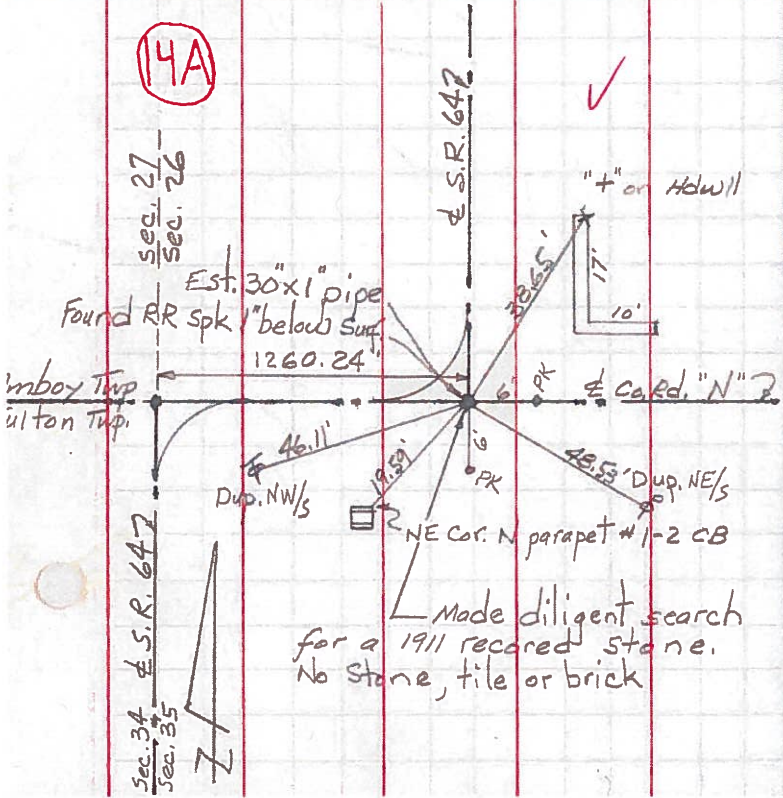 14A
℄ S.R. 647
Sec. 27
Sec. 26
"+" on Hdwll
38.65'
17'
10'
Est. 30"x1" pipe
Found RR spk 1" below Surf.
1260.24'
mboy Twp
ulton Twp.
6'
PK
℄ Co. Rd. "N"
46.11'
Dup. NW/s
19.59'
6'
PK
48.53'
Dup. NE/s
NE Cor. N parapet #1-2 CB
℄ S.R. 647
Made diligent search
for a 1911 recored stone.
No Stone, tile or brick
Sec. 34
Sec. 35